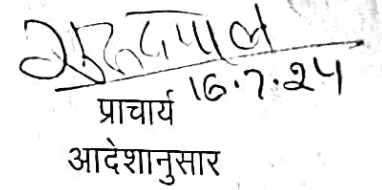 16.7.24
प्राचार्य
आदेशानुसार